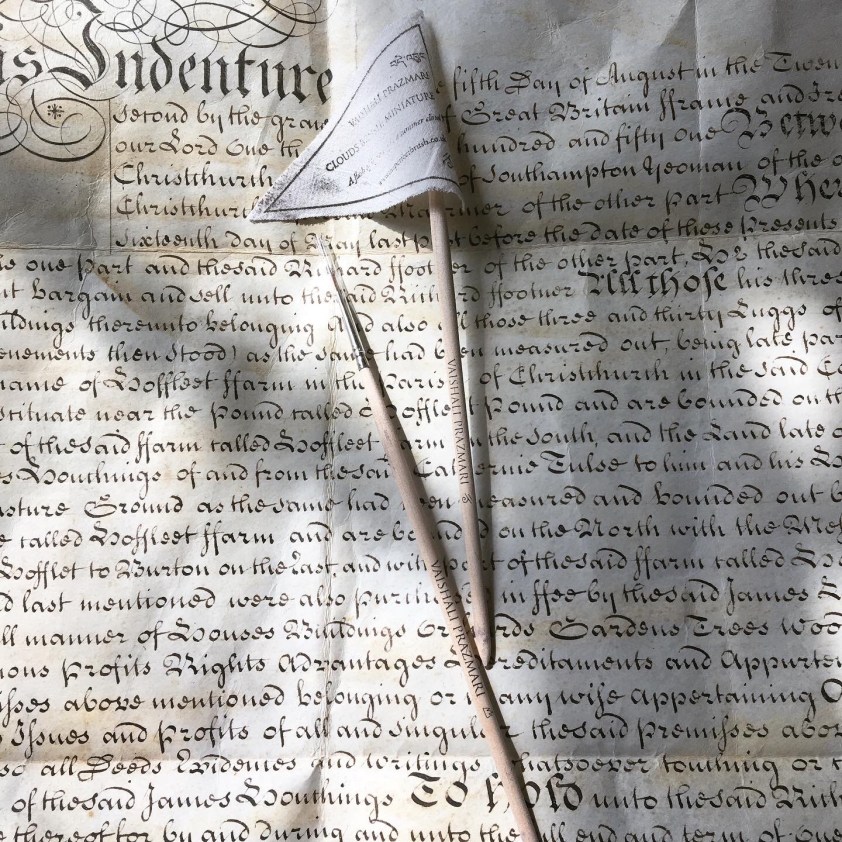 is Indenture
fifth Day of August in the Twen
Second by the grac
of Great Britain ffrance and Ire
our Lord One th
hundred and fifty one Betw
Christchurch
of Southampton Yeoman of the o
Christchurch
of the other part Wher
Sixteenth day of May last p t before the date of these Presents
one part and the said Richard ffoot er of the other part,
t bargain and sell unto the said Rich rd ffootner All those his three
ildings thereunto belonging And also ll those three and thirty Luggs of
enements then Stood) as the same had b en measured out, being late par
name of Hoffleet ffarm in the Paris of Christchurch in the said Co
stituate near the Pound called Hoffle t Pound and are bounded on th
of the said ffarm called Hoffleet arm n the South, and the Land late o
s Houthings of and from the said Cat erine Tulse to him and his
sture Ground as the same had een measured and bounded out b
e called Hoffleet ffarm and are bo nd d on the North with the Mes
Hofflet to Burton on the East and with p rt of the said ffarm called
d last mentioned were also purch in ffee by the said James
ll manner of Houses Buildings Or rds Gardens Trees Woo
ious Profits Rights Advantages reditaments and Appurte
isses above mentioned belonging or i any wise appertaining
Issues and Profits of all and singul r the said Premisses abov
so all Deeds Evidences and Writings hatsoever touching or
of the said James Houthings To hold unto the said Rich
thereof for by and during and unto the ull end and term of One
VAISHALI PRAZMARI
CLOUDS
MINIATURE
VAISHALI PRAZMARI
VAISHALI PRAZMARI